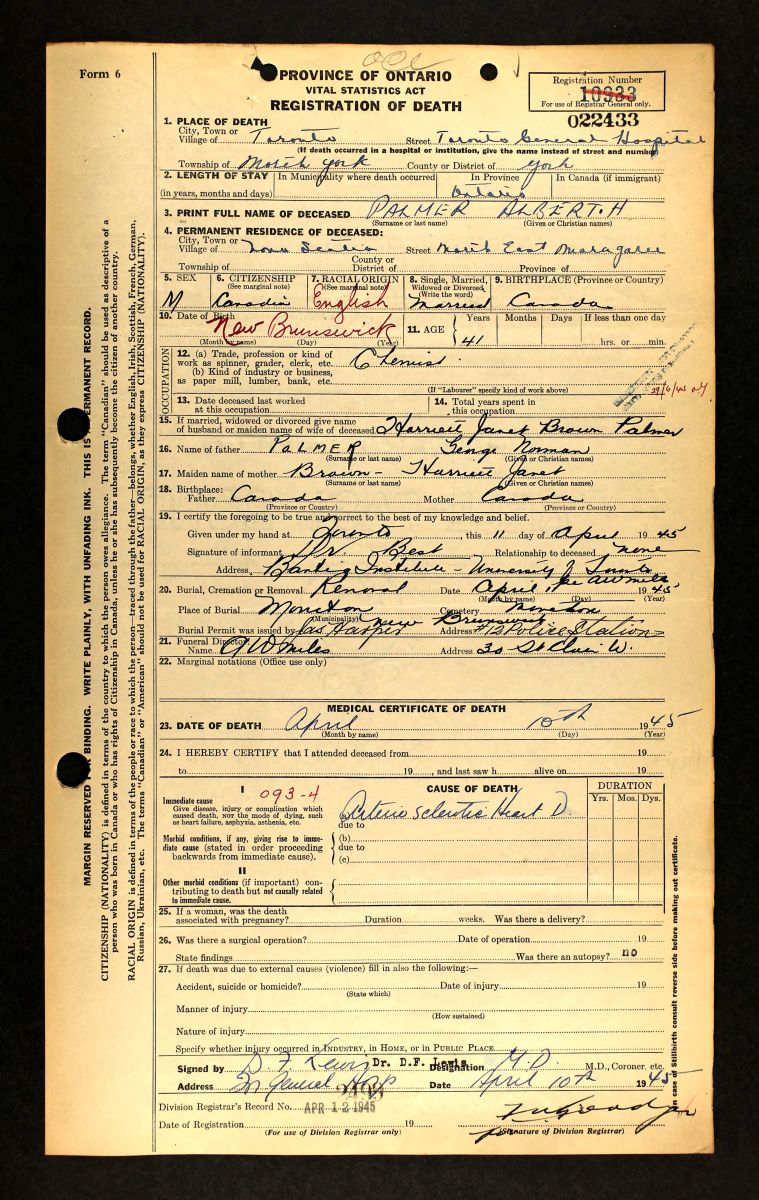 occ
Form 6
PROVINCE OF ONTARIO
VITAL STATISTICS ACT
REGISTRATION OF DEATH
Registration Number
10933
For use of Registrar General only.
022433
1. PLACE OF DEATH
City, Town or Village of Toronto Street Toronto General Hospital
(If death occurred in a hospital or institution, give the name instead of street and number)
Township of North York County or District of York
2. LENGTH OF STAY In Municipality where death occurred In Province In Canada (if immigrant)
(in years, months and days) Ontario
3. PRINT FULL NAME OF DECEASED PALMER ALBERT. H
(Surname or last name) (Given or Christian names)
4. PERMANENT RESIDENCE OF DECEASED:
City, Town or Village of Nova Scotia Street North East Margaree
Township of County or District of Province of
5. SEX 6. CITIZENSHIP (See marginal note) 7. RACIAL ORIGIN (See marginal note) 8. Single, Married, Widowed or Divorced (Write the word) 9. BIRTHPLACE (Province or Country)
M Canadian English Married Canada
10. Date of Birth New Brunswick 11. AGE Years Months Days If less than one day
(Month by name) (Day) (Year) 41 hrs. or min.
OCCUPATION
12. (a) Trade, profession or kind of work as spinner, grader, clerk, etc. Chemist
(b) Kind of industry or business, as paper mill, lumber, bank, etc.
(If "Labourer" specify kind of work above)
13. Date deceased last worked at this occupation 14. Total years spent in this occupation
15. If married, widowed or divorced give name of husband or maiden name of wife of deceased Harriett Janet Brown Palmer
16. Name of father PALMER George Norman
(Surname or last name) (Given or Christian names)
17. Maiden name of mother Brown - Harriett Janet
(Surname or last name) (Given or Christian names)
18. Birthplace: Father Canada Mother Canada
(Province or Country) (Province or Country)
19. I certify the foregoing to be true and correct to the best of my knowledge and belief.
Given under my hand at Toronto, this 11 day of April 1945
Signature of informant Dr Best Relationship to deceased none
Address Banting Institute - University of Toronto
20. Burial, Cremation or Removal Removal Date April 11 1945
(Month by name) (Day) (Year)
Place of Burial Moncton Cemetery Moncton
(Municipality) New Brunswick
Burial Permit was issued by Jas Harper Address #12 Police Station
21. Funeral Director Name A W Miles Address 30 St Clair W.
22. Marginal notations (Office use only)
MEDICAL CERTIFICATE OF DEATH
23. DATE OF DEATH April 10th 1945
(Month by name) (Day) (Year)
24. I HEREBY CERTIFY that I attended deceased from 19
to 19 , and last saw h alive on 19
I 093-4 CAUSE OF DEATH DURATION
Yrs. Mos. Dys.
Immediate cause
Give disease, injury or complication which caused death, NOT the mode of dying, such as heart failure, asphyxia, asthenia, etc.
(a) Arterio sclerotic Heart D.
due to
Morbid conditions, if any, giving rise to immediate cause (stated in order proceeding backwards from immediate cause).
(b)
due to
(c)
II
Other morbid conditions (if important) contributing to death but not causally related to immediate cause.
25. If a woman, was the death associated with pregnancy? Duration weeks. Was there a delivery?
26. Was there a surgical operation? Date of operation 19
State findings Was there an autopsy? no
27. If death was due to external causes (violence) fill in also the following:—
Accident, suicide or homicide? Date of injury 19
(State which)
Manner of injury
(How sustained)
Nature of injury
Specify whether injury occurred in INDUSTRY, in HOME, or in PUBLIC PLACE
Signed by D F Lewis Dr. D.F. Lewis Designation M.D. M.D., Coroner, etc.
Address Tor General Hosp Date April 10th 1945
Division Registrar's Record No. APR 12 1945
Date of Registration 19
(For use of Division Registrar) (Signature of Division Registrar)
MARGIN RESERVED FOR BINDING. WRITE PLAINLY, WITH UNFADING INK. THIS IS A PERMANENT RECORD.
CITIZENSHIP (NATIONALITY) is defined in terms of the country to which the person owes allegiance. The term "Canadian" should be used as descriptive of a person who was born in Canada or who has rights of Citizenship in Canada, unless he or she has subsequently become the citizen of another country.
RACIAL ORIGIN is defined in terms of the people or race to which the person—traced through the father—belongs, whether English, Irish, Scottish, French, German, Russian, Ukrainian, etc. The terms "Canadian" or "American" should not be used for RACIAL ORIGIN, as they express CITIZENSHIP (NATIONALITY).
In case of Stillbirth consult reverse side before making out certificate.